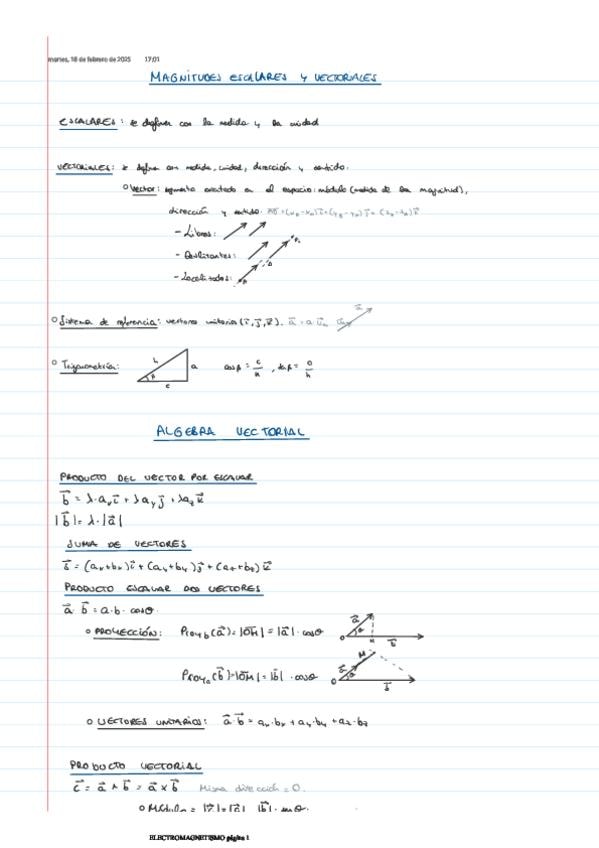 martes, 18 de febrero de 2025 17:01
MAGNITUDES ESCALARES Y VECTORIALES
ESCALARES: se definen con la medida y la unidad
VECTORIALES: se definen con medida, unidad, dirección y sentido.
○ Vector: segmento orientado en el espacio: módulo (medida de la magnitud),
dirección y sentido.
- Libres:
- Deslizantes:
- Localizados:
○ Sistema de referencia: vectores unitarios (i⃗, j⃗, k⃗). a⃗ = a·u⃗ₐ
○ Trigonometría: h a c β cos β = c/h , β = o/h
ALGEBRA VECTORIAL
PRODUCTO DEL VECTOR POR ESCALAR
b⃗ = λ·aₓi⃗ + λ a_y j⃗ + λa_z k⃗
|b⃗| = λ·|a⃗|
SUMA DE VECTORES
s⃗ = (aₓ+bₓ)i⃗ + (a_y+b_y)j⃗ + (a_z+b_z)k⃗
PRODUCTO ESCALAR DOS VECTORES
a⃗·b⃗ = a·b·cosθ
○ PROYECCIÓN: Proy_b(a⃗) = |OM| = |a⃗|·cosθ
Proy_a(b⃗) = |OM| = |b⃗|·cosθ
○ VECTORES UNITARIOS: a⃗·b⃗ = aₓ·bₓ + a_y·b_y + a_z·b_z
PRODUCTO VECTORIAL
c⃗ = a⃗ ∧ b⃗ = a⃗ × b⃗ Misma dirección = 0.
○ Módulo = |c⃗| = |a⃗| |b⃗| · senθ.
ELECTROMAGNETISMO página 1